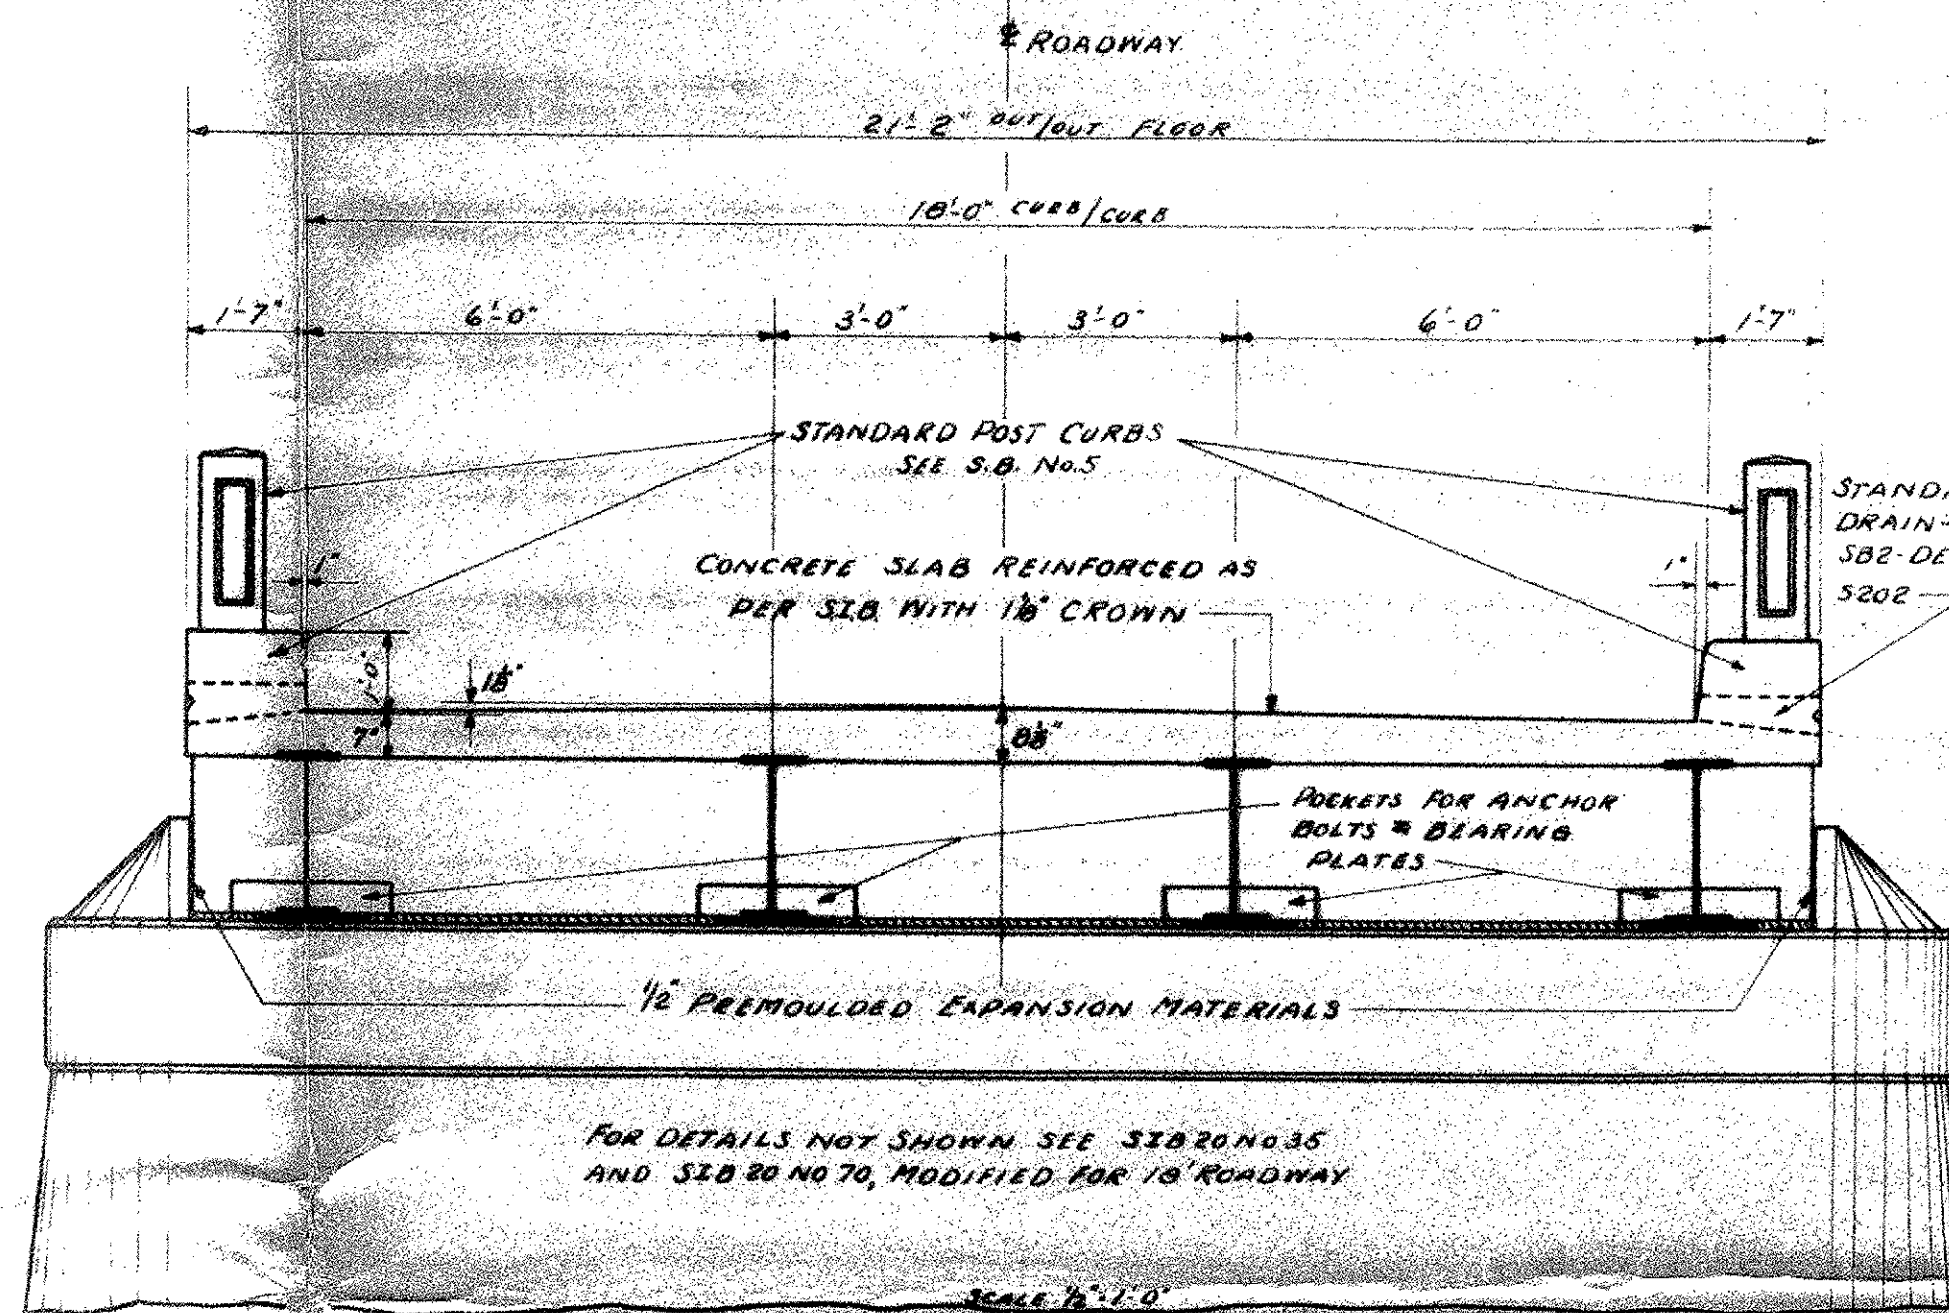 ℄ ROADWAY
21'-2" OUT/OUT FLOOR
18'-0" CURB/CURB
1'-7" 6'-0" 3'-0" 3'-0" 6'-0" 1'-7"
STANDARD POST CURBS
SEE S.B. No.5
STANDA
DRAIN-
SB2-DE
S202
1"
1"
CONCRETE SLAB REINFORCED AS
PER SIB WITH 1⅛" CROWN
1'-0"
1⅛"
7"
8⅛"
POCKETS FOR ANCHOR
BOLTS & BEARING
PLATES
1/2" PREMOULDED EXPANSION MATERIALS
FOR DETAILS NOT SHOWN SEE SIB 20 NO 35
AND SIB 20 NO 70, MODIFIED FOR 18' ROADWAY
SCALE ½"-1'-0"